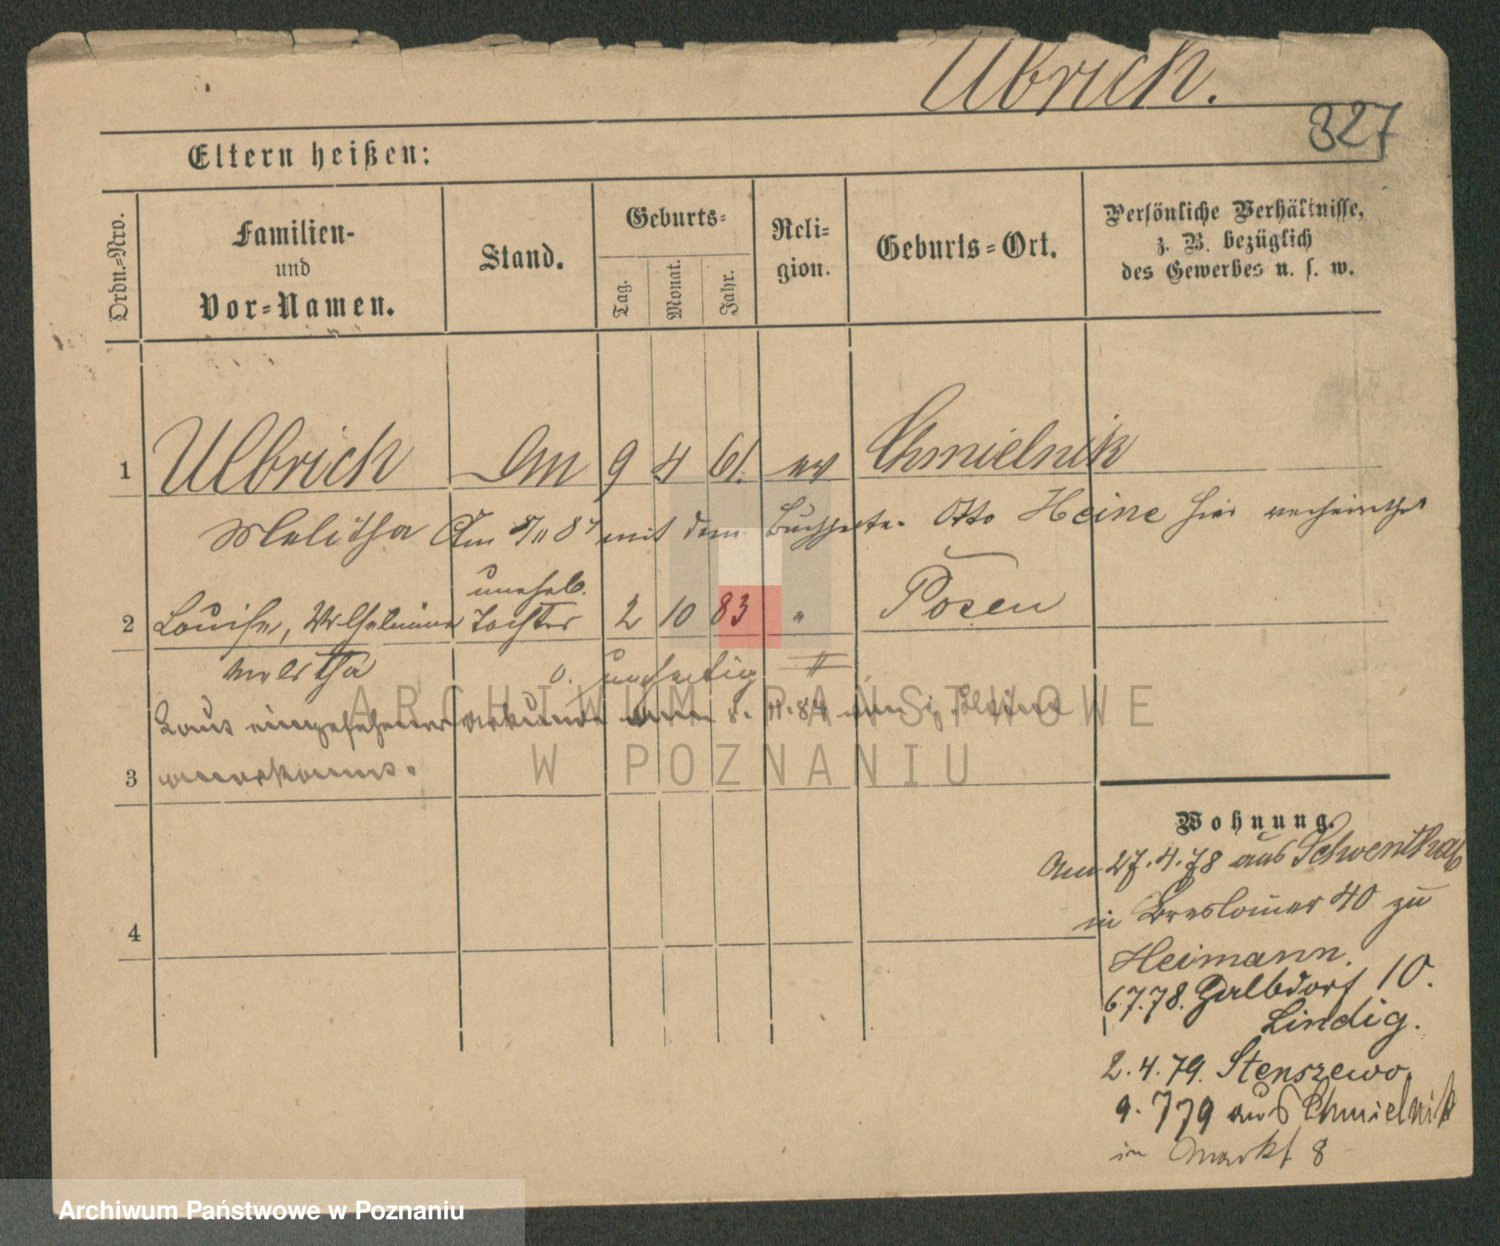 Ulbrich.
327
Eltern heißen:
Ordn.-Nro.
Familien-
und
Vor-Namen.
Stand.
Geburts-
Tag.
Monat.
Jahr.
Reli-
gion.
Geburts-Ort.
Persönliche Verhältnisse,
z. B. bezüglich
des Gewerbes u. s. w.
1 Ulbrich 9 4 61. ev Chmielnik
Melitha Am mit dem Otto Heine hier
unehel.
2 Louise, Wilhelmine Tochter 2 10 83 " Posen
Melitha
Laut
3
anerkannt.
Wohnung.
Am 27.4.78 aus Schwenthal
in Breslauer 40 zu
Heimann.
6.7.78. Halbdorf 10.
Lindig.
2.4.79. Stenszewo.
9.779 aus Chmielnik
in Markt 8
4
ARCHIWUM PAŃSTWOWE
W POZNANIU
Archiwum Państwowe w Poznaniu